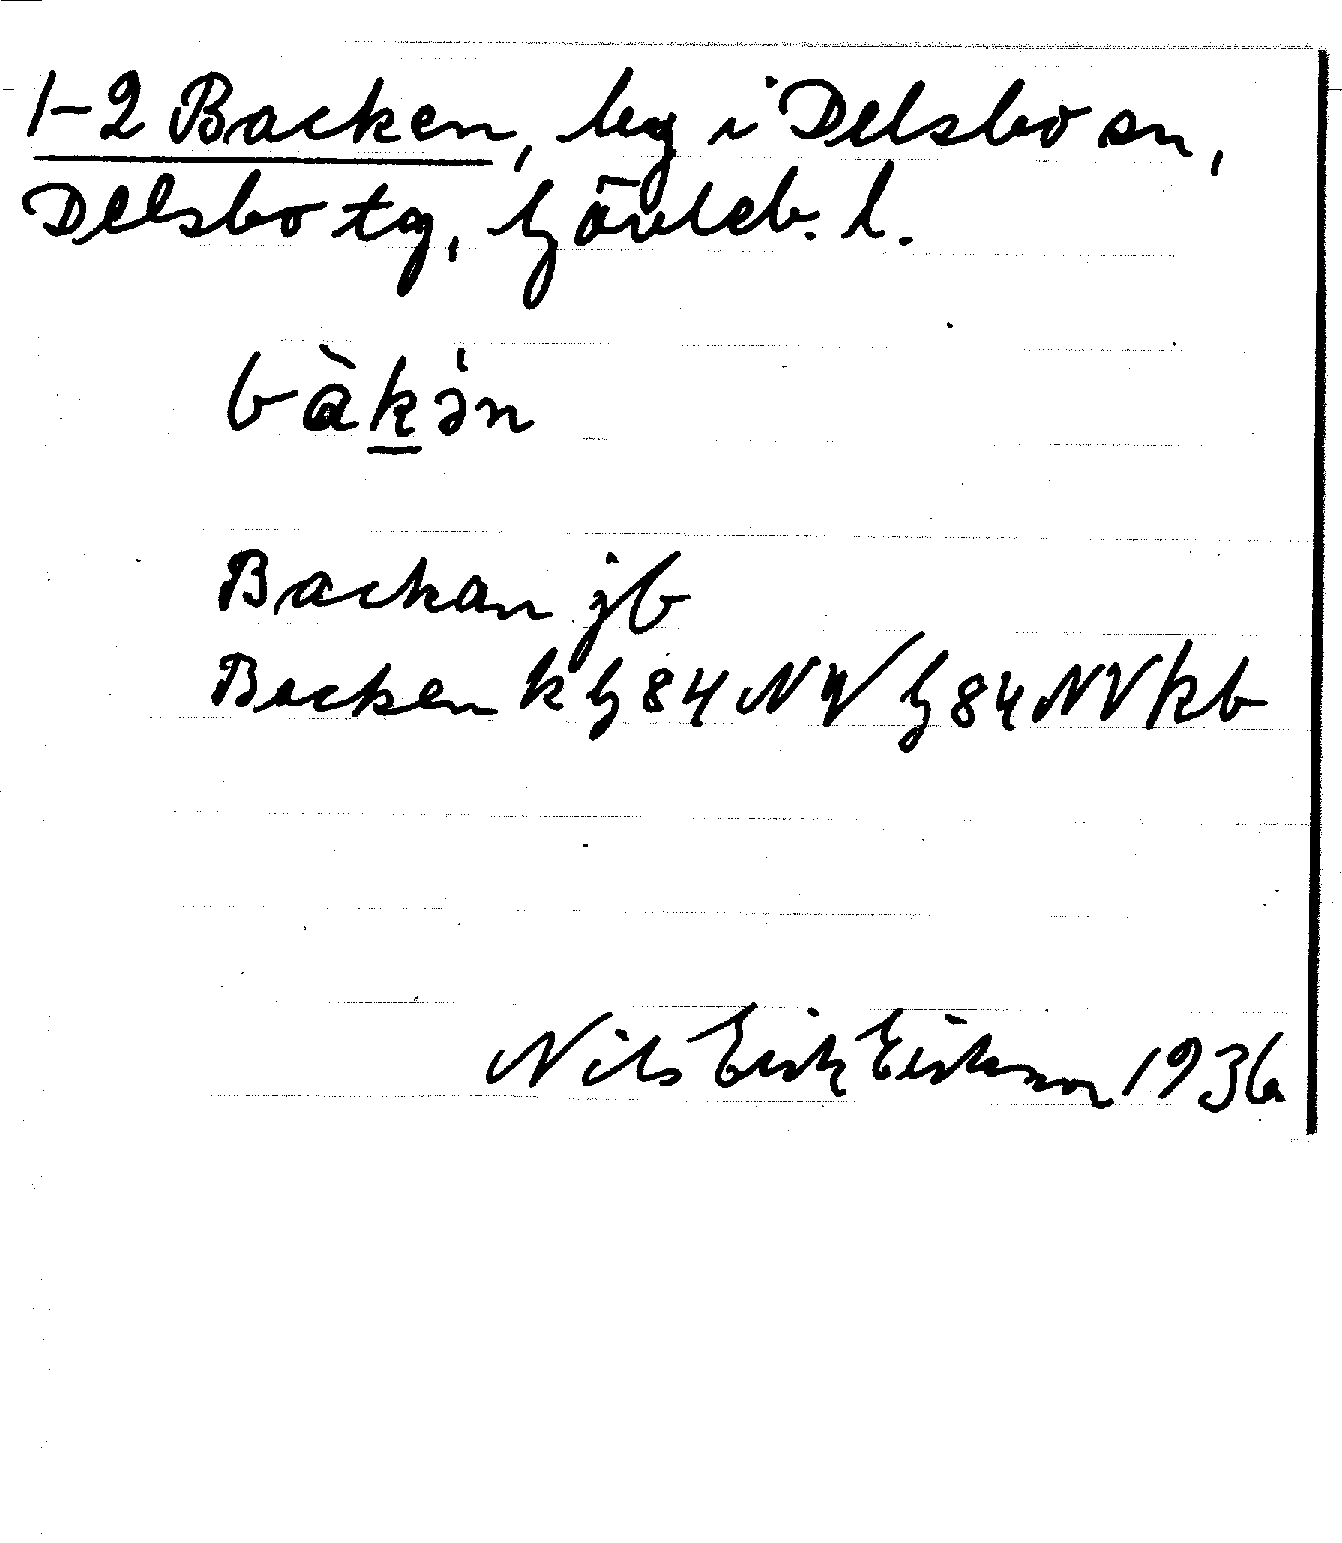 1-2 Backen, by i Delsbo sn,
Delsbo tg, Gävleb. l.
bàk̲ə̀n
Backan jb
Backen k G 84 NV G 84 NV kb
Nils Erik Eriksson 1936